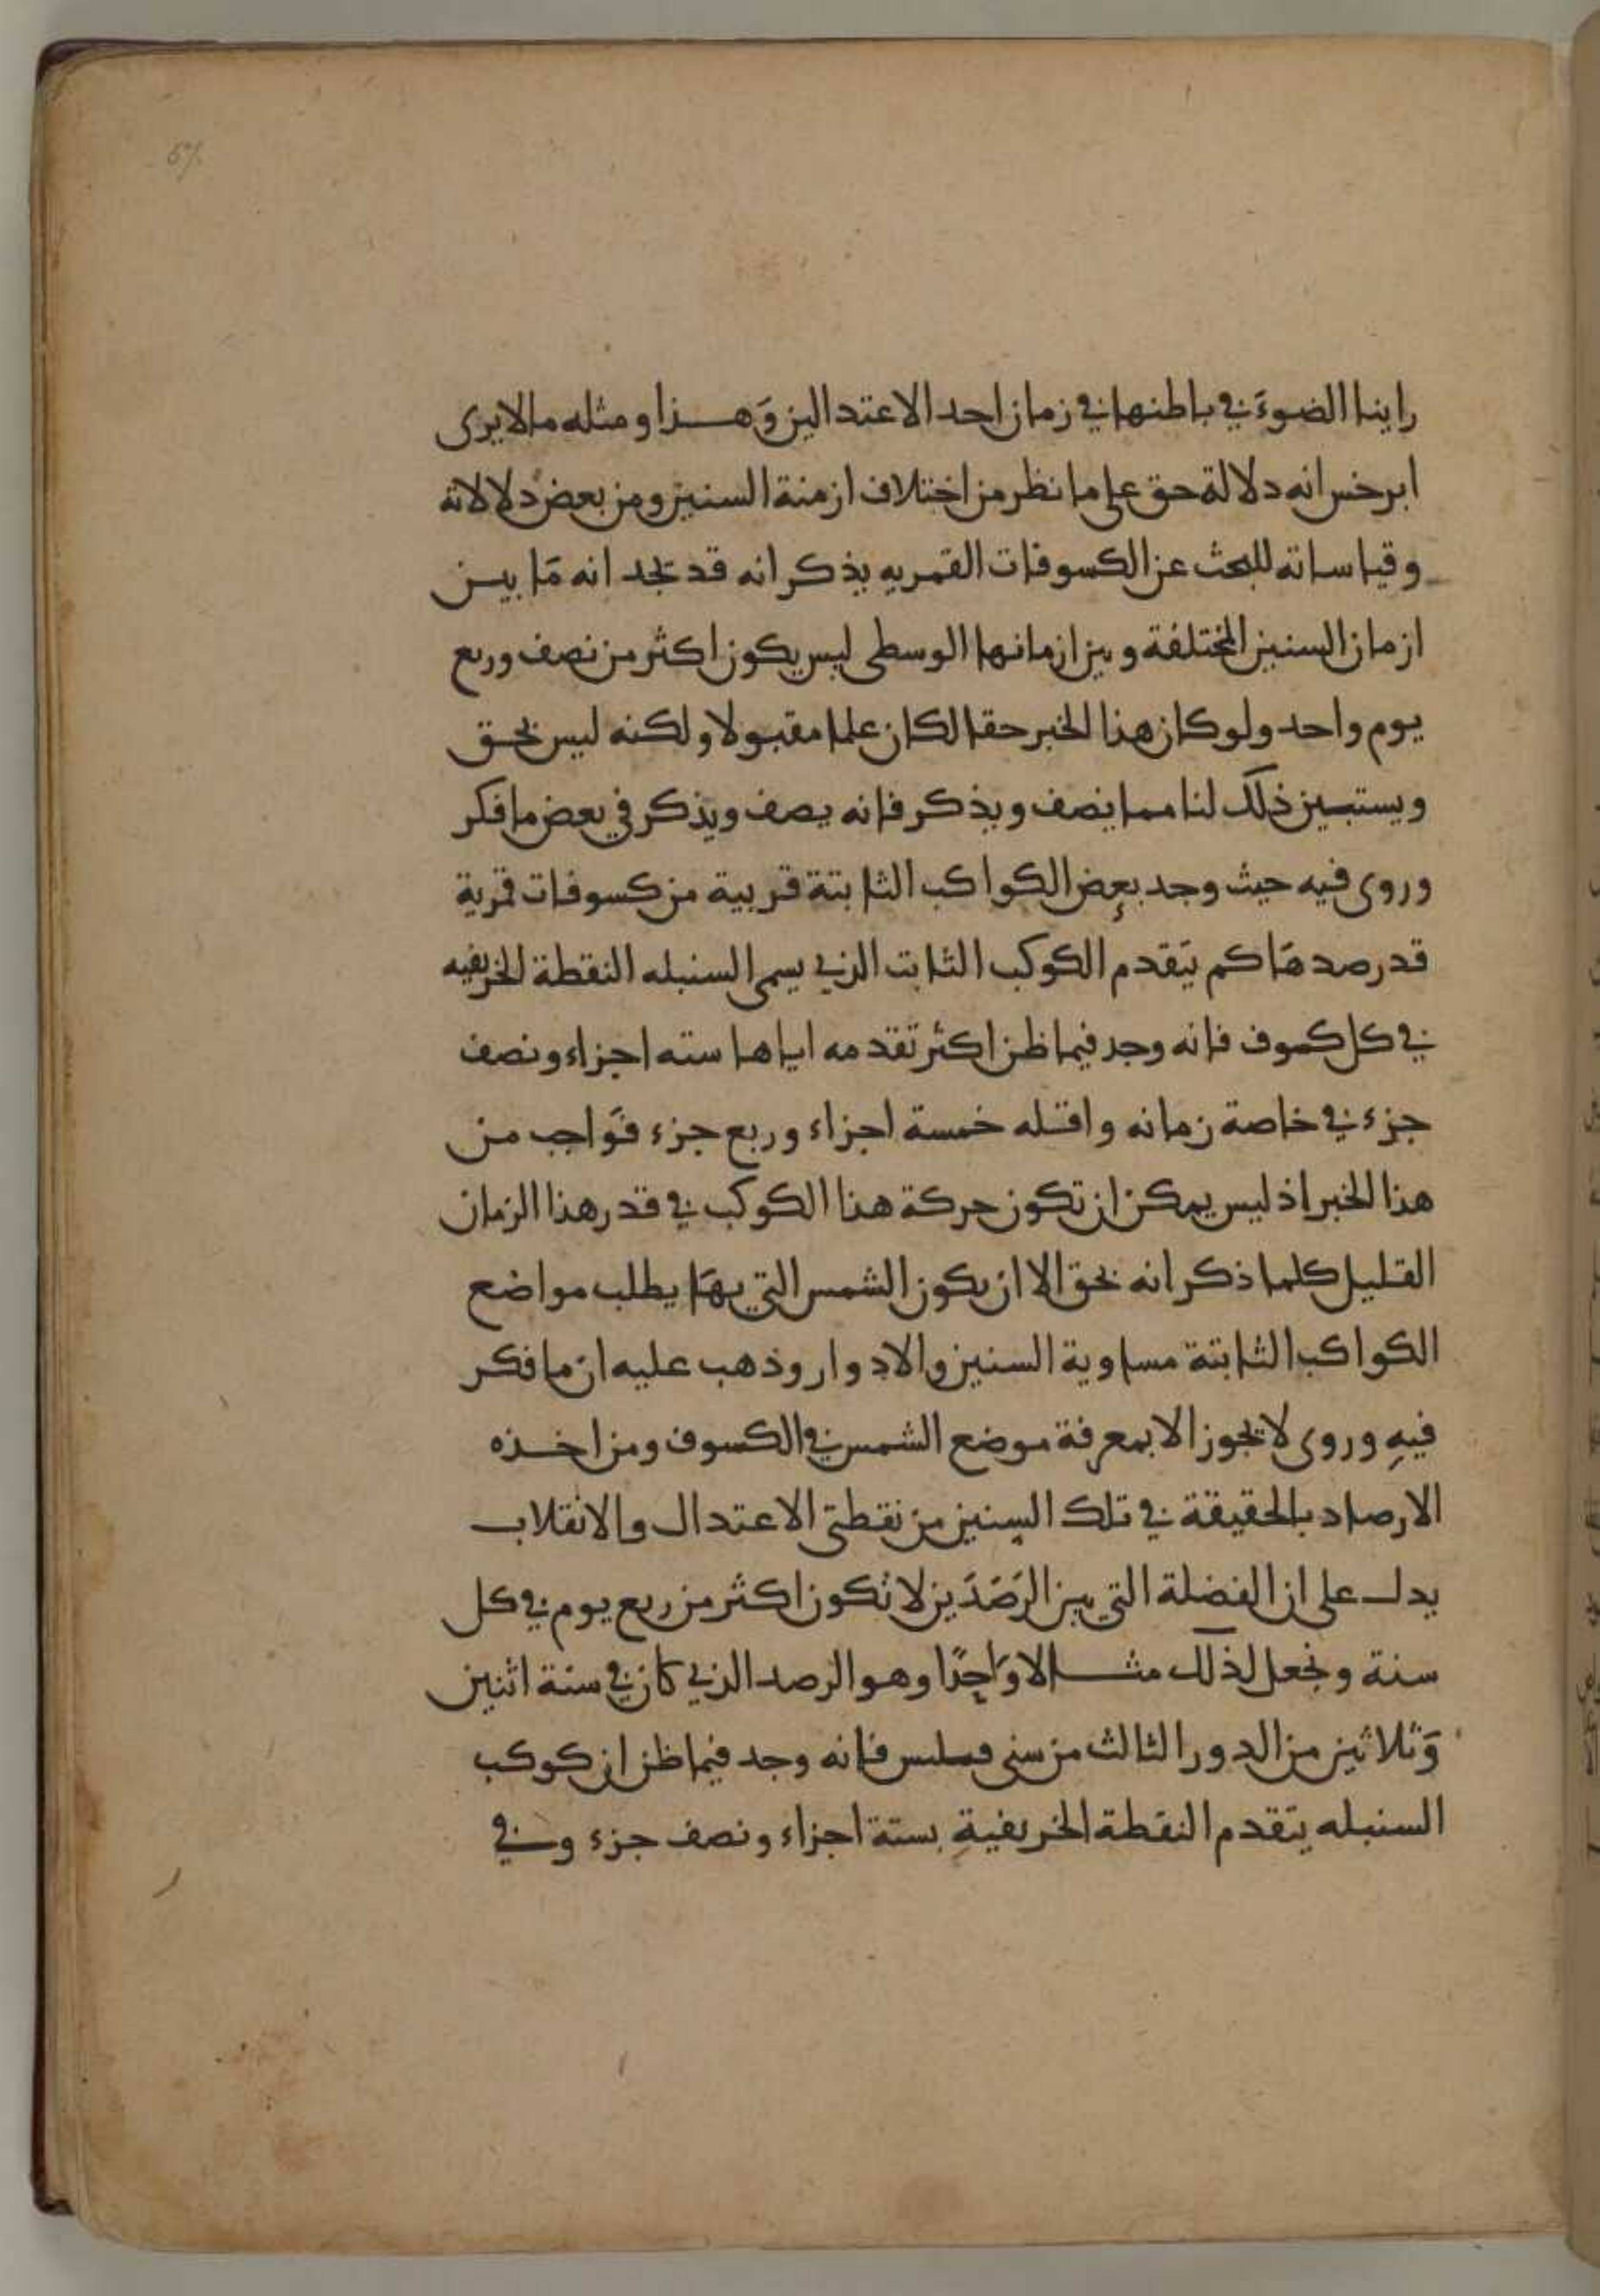 راينا الضوءَ في باطنها في زمان احد الاعتدالين وَهذا ومثله مالا يرى
ابرخس انه دلالة حق على ما نظر من اختلاف ازمنة السنين ومن بعض دلالاته
وقياساته للبحث عن الكسوفات القمريه يذكر انه قد نجد انه مَا بين
ازمان السنين المختلفة وبين ازمانها الوسطى ليس يكون اكثر من نصف وربع
يوم واحد ولو كان هذا الخبر حقا لكان علما مقبولا ولكنه ليس بحق
ويستبين ذلك لنا مما يصف ويذكر فانه يصف ويذكر في بعض ما فكر
وروى فيه حيث وجد بعض الكواكب الثابتة قريبة من كسوفات قمرية
قد رصدهَا كم يَتقدم الكوكب الثابت الذي يسمى السنبله النقطة الخريفيه
في كل كسوف فانه وجد فيما ظن اكثر تقدمه اياها سته اجزاء ونصف
جزء في خاصة زمانه واقله خمسة اجزاء وربع جزء فوَاجب من
هذا الخبر اذ ليس يمكن ان تكون حركة هذا الكوكب في قدر هذا الزمان
القليل كلما ذكر انه بحق الا ان يكون الشمس التي بهَا يطلب مواضع
الكواكب الثابتة مساوية السنين والادوار وذهب عليه ان ما فكر
فيهِ وروى لا يجوز الا بمعرفة موضع الشمس في الكسوف ومن اخذه
الارصاد بالحقيقة في تلك السنين من نقطتي الاعتدال والانقلاب
يدل على ان الفضلة التي بين الرَصَدَين لا تكون اكثر من ربع يوم في كل
سنة ونجعل لذلك مثالا وَاحِدًا وهو الرصد الذي كان في سنة اثنين
وَثلاثين من الدور الثالث من سني فسلبس فانه وجد فيما ظن ان كوكب
السنبله يتقدم النقطة الخريفيةِ بستة اجزاء ونصف جزء وفي